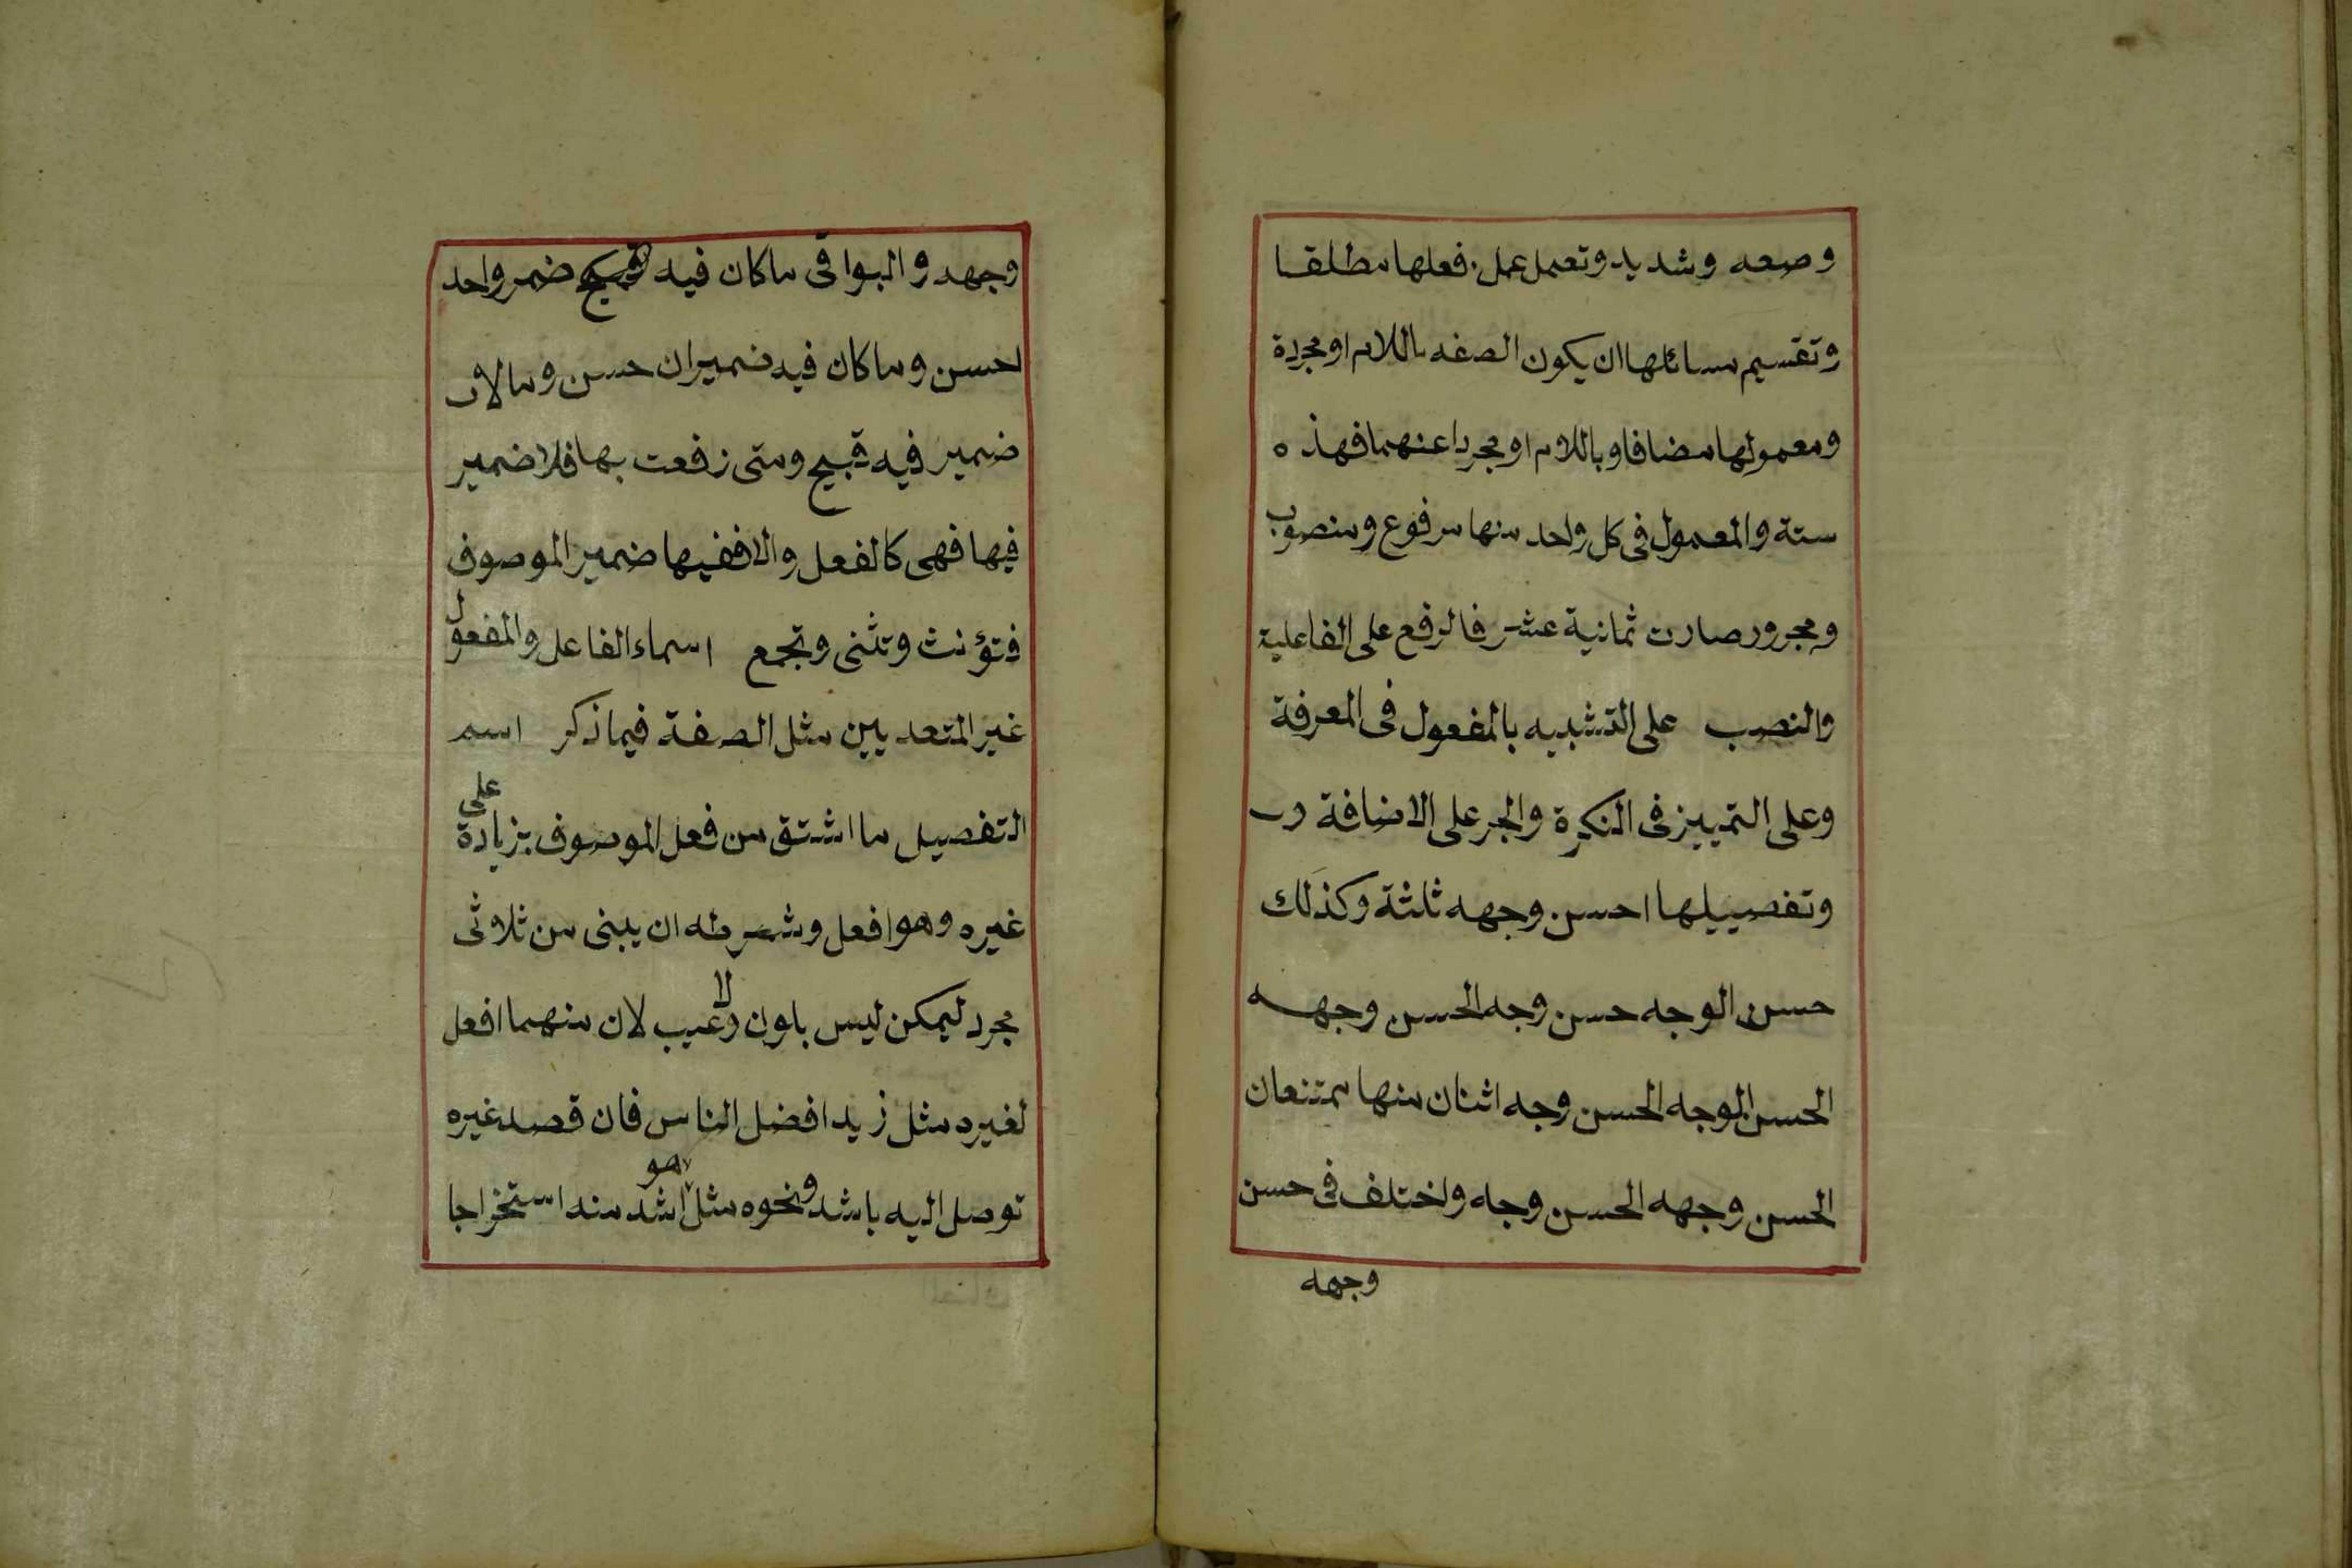 وصعه وشديد وتعمل عمل فعلها مطلقا
وتقسيم مسائلها ان يكون الصفه باللام او مجردة
ومعمولها مضافا وباللام او مجردا عنهما فهذه
ستة والمعمول فى كل واحد منها مرفوع ومنصوب
ومجرور صارت ثمانية عشر فالرفع على الفاعلية
والنصب على التشبيه بالمفعول فى المعرفة
وعلى التمييز فى النكرة والجر على الاضافة
وتفصيلها احسن وجهه ثلثة وكذلك
حسن الوجه حسن وجه الحسن وجهه
الحسن الوجه الحسن وجه اثنان منها ممتنعان
الحسن وجهه الحسن وجه واختلف فى حسن
وجهه
وجهه والبواقى ماكان فيه ضمر واحد
احسن وماكان فيه ضميران حسن ومالا
ضمير فيه قبيح ومتى رفعت بها فلا ضمير
فيها فهى كالفعل والا ففيها ضمير الموصوف
فتؤنث وتثنى وتجمع اسماء الفاعل والمفعول
غير المتعديين مثل الصفة فيما ذكر اسم
التفصيل ما اشتق من فعل الموصوف بزيادة على
غيره وهو افعل وشرطه ان يبنى من ثلاثى
مجرد ليمكن ليس بلون ولا عيب لان منهما افعل
لغيره مثل زيد افضل الناس فان قصد غيره
توصل اليه باشد ونحوه مثل هو اشد منه استخراجا